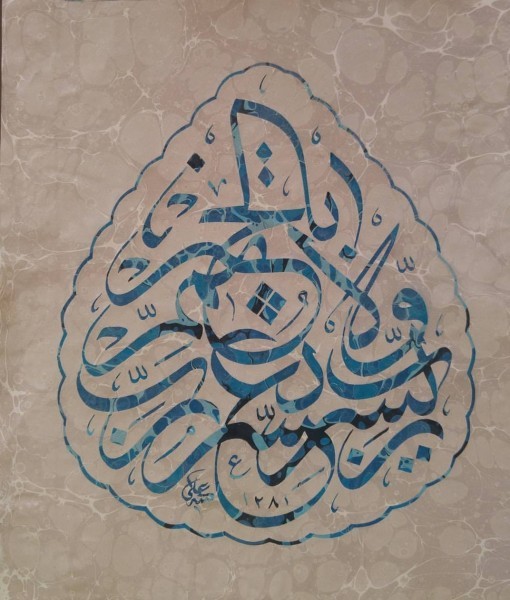 رَبِّ يَسِّرْ وَلَا تُعَسِّرْ
رَبِّ تَمِّمْ بِالْخَيْرِ
١٢٨١